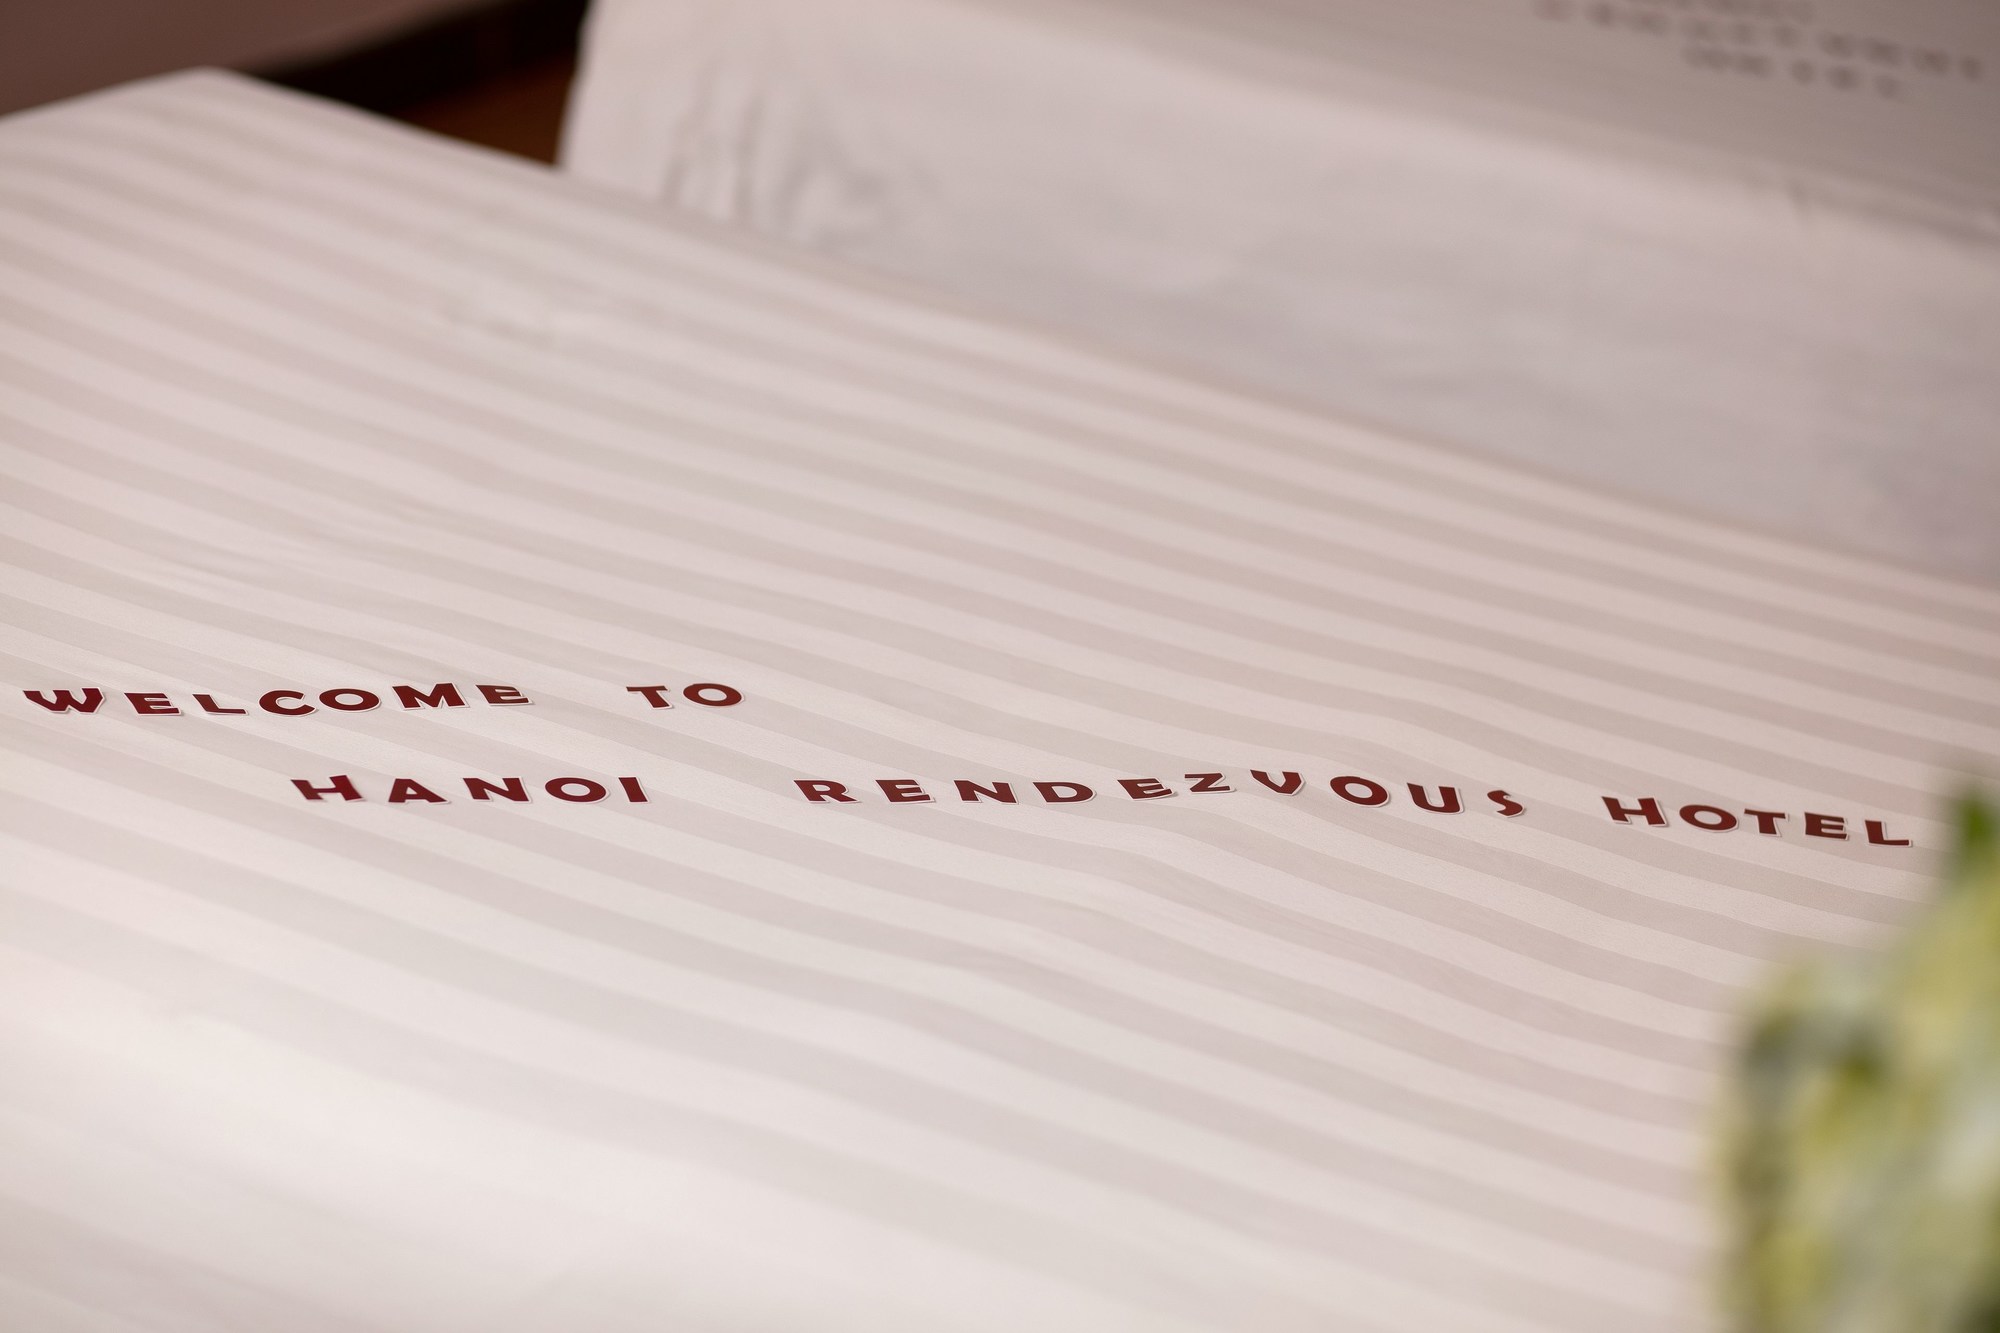 WELCOME TO
HANOI RENDEZVOUS HOTEL